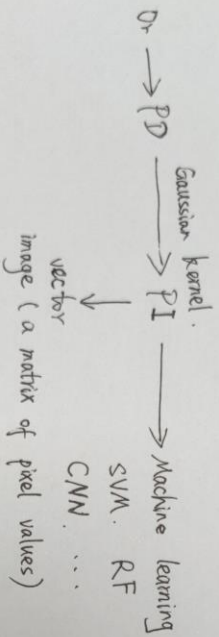 Or → PD → Gaussian kernel. PI → Machine learning
SVM. RF
CNN. ...
↓
vector
image (a matrix of pixel values)